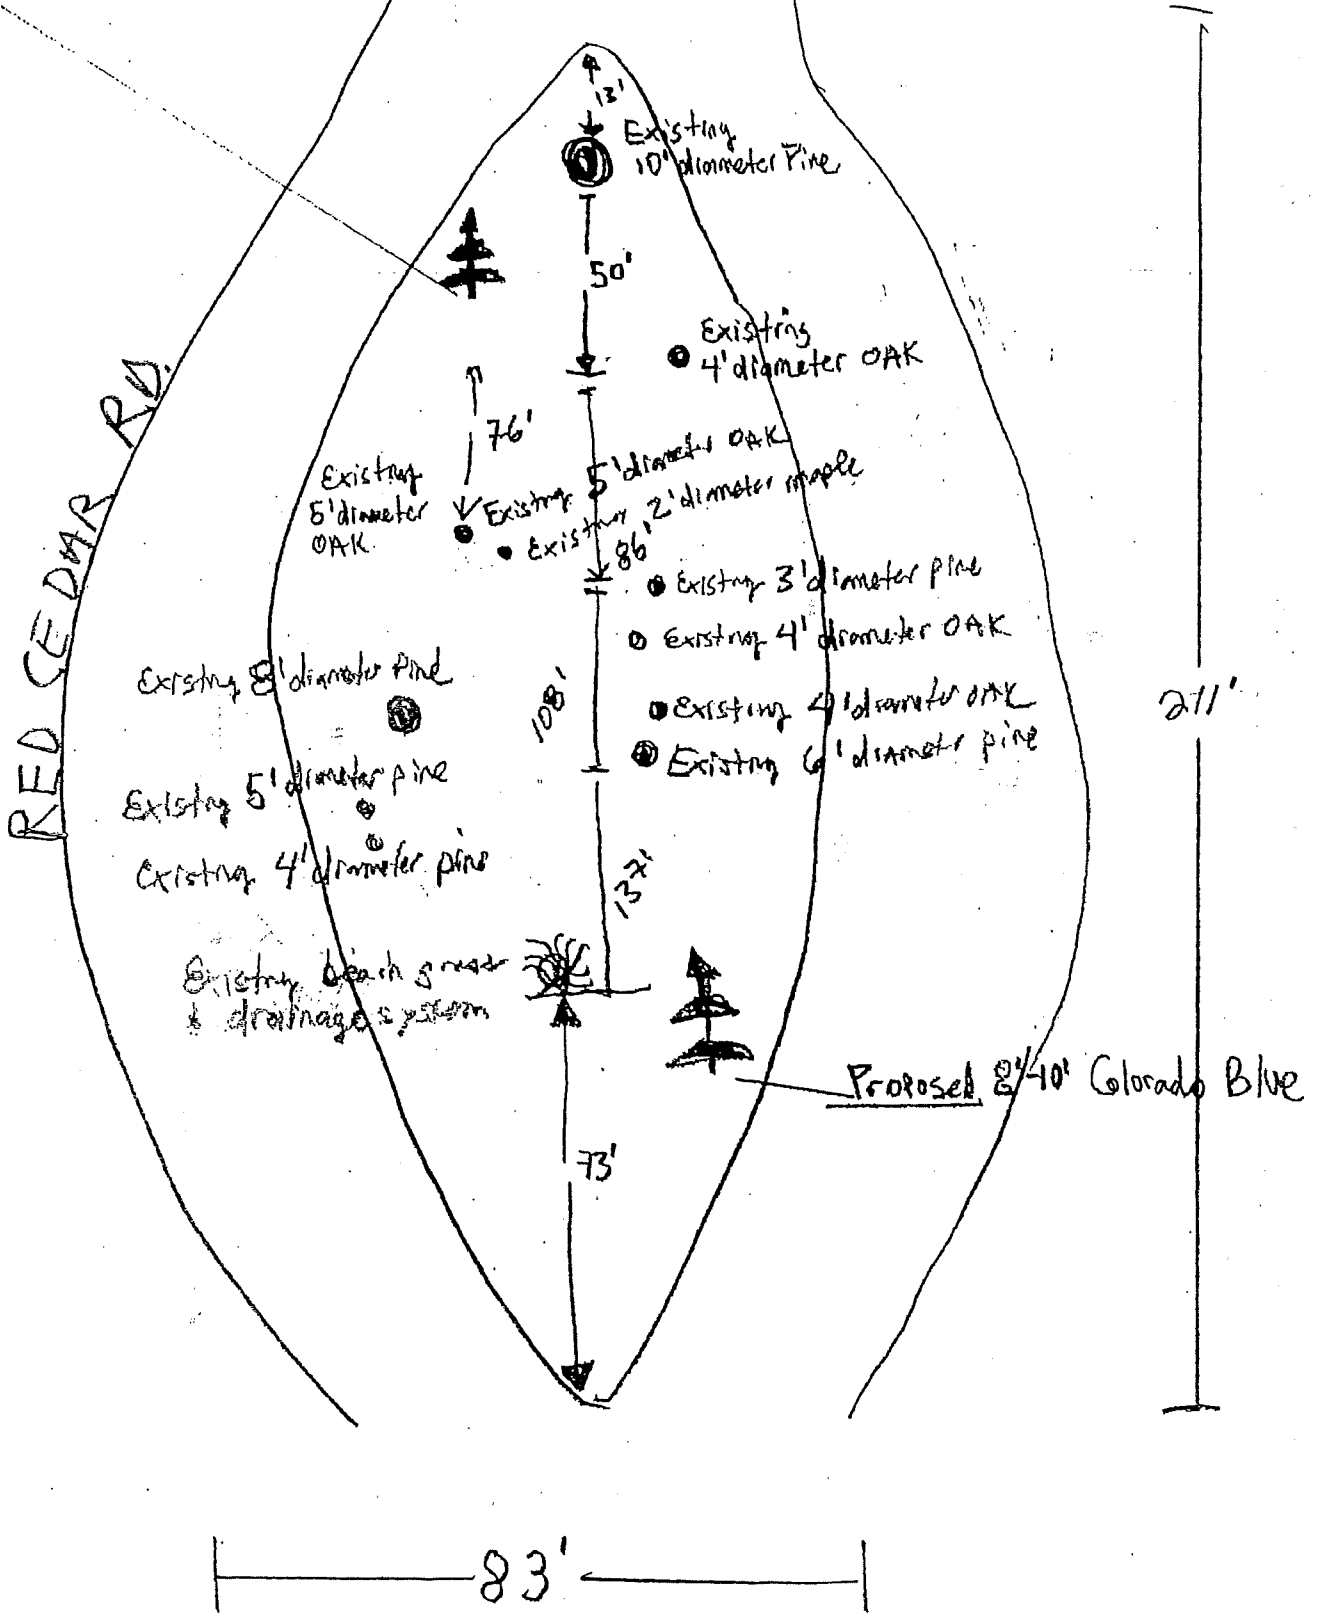 13'
Existing
10' diameter Pine
50'
Existing
4' diameter OAK
76'
Existing
5' diameter
OAK
Existing 5' diameter OAK
Existing 2' diameter maple
86'
Existing 3' diameter pine
Existing 4' diameter OAK
Existing 8' diameter Pine
108'
Existing 4' diameter OAK
Existing 6' diameter pine
Existing 5' diameter pine
Existing 4' diameter pine
132'
Existing beach grass
& drainage system
Proposed 8'-10' Colorado Blue
73'
RED CEDAR RD.
211'
83'